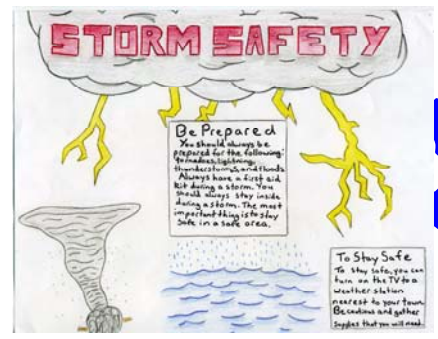 STORM SAFETY
Be Prepared
You should always be
prepared for the following:
tornadoes, lightning,
thunderstorms, and floods.
Always have a first aid
kit during a storm. You
should always stay inside
during a storm. The most
important thing is to stay
safe in a safe area.
To Stay Safe
To stay safe, you can
turn on the TV to a
weather station
nearest to your town.
Be cautious and gather
supplies that you will need.